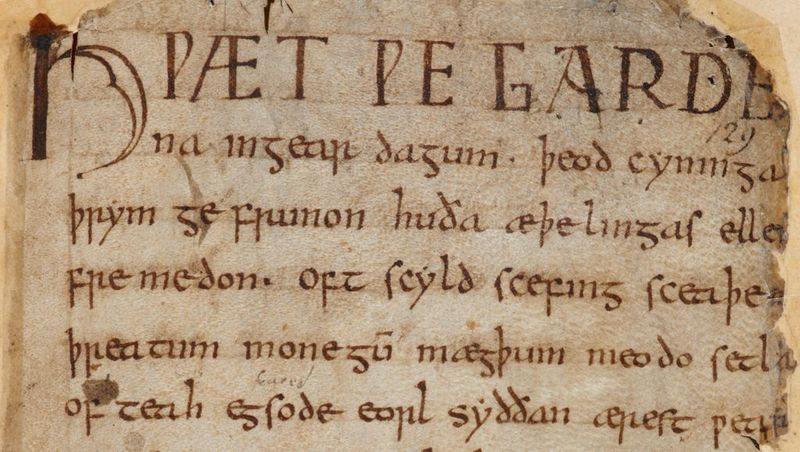 HǷÆT ǷE GARDE
129
na ingear dagum. þeod cyninga
þrym ge frunon huða æþelingas ellen
fre medon. oft scyld scefing sceaþen
þreatum monegū mægþum meodo setla
of teah egsode eorl syððan ærest ƿear